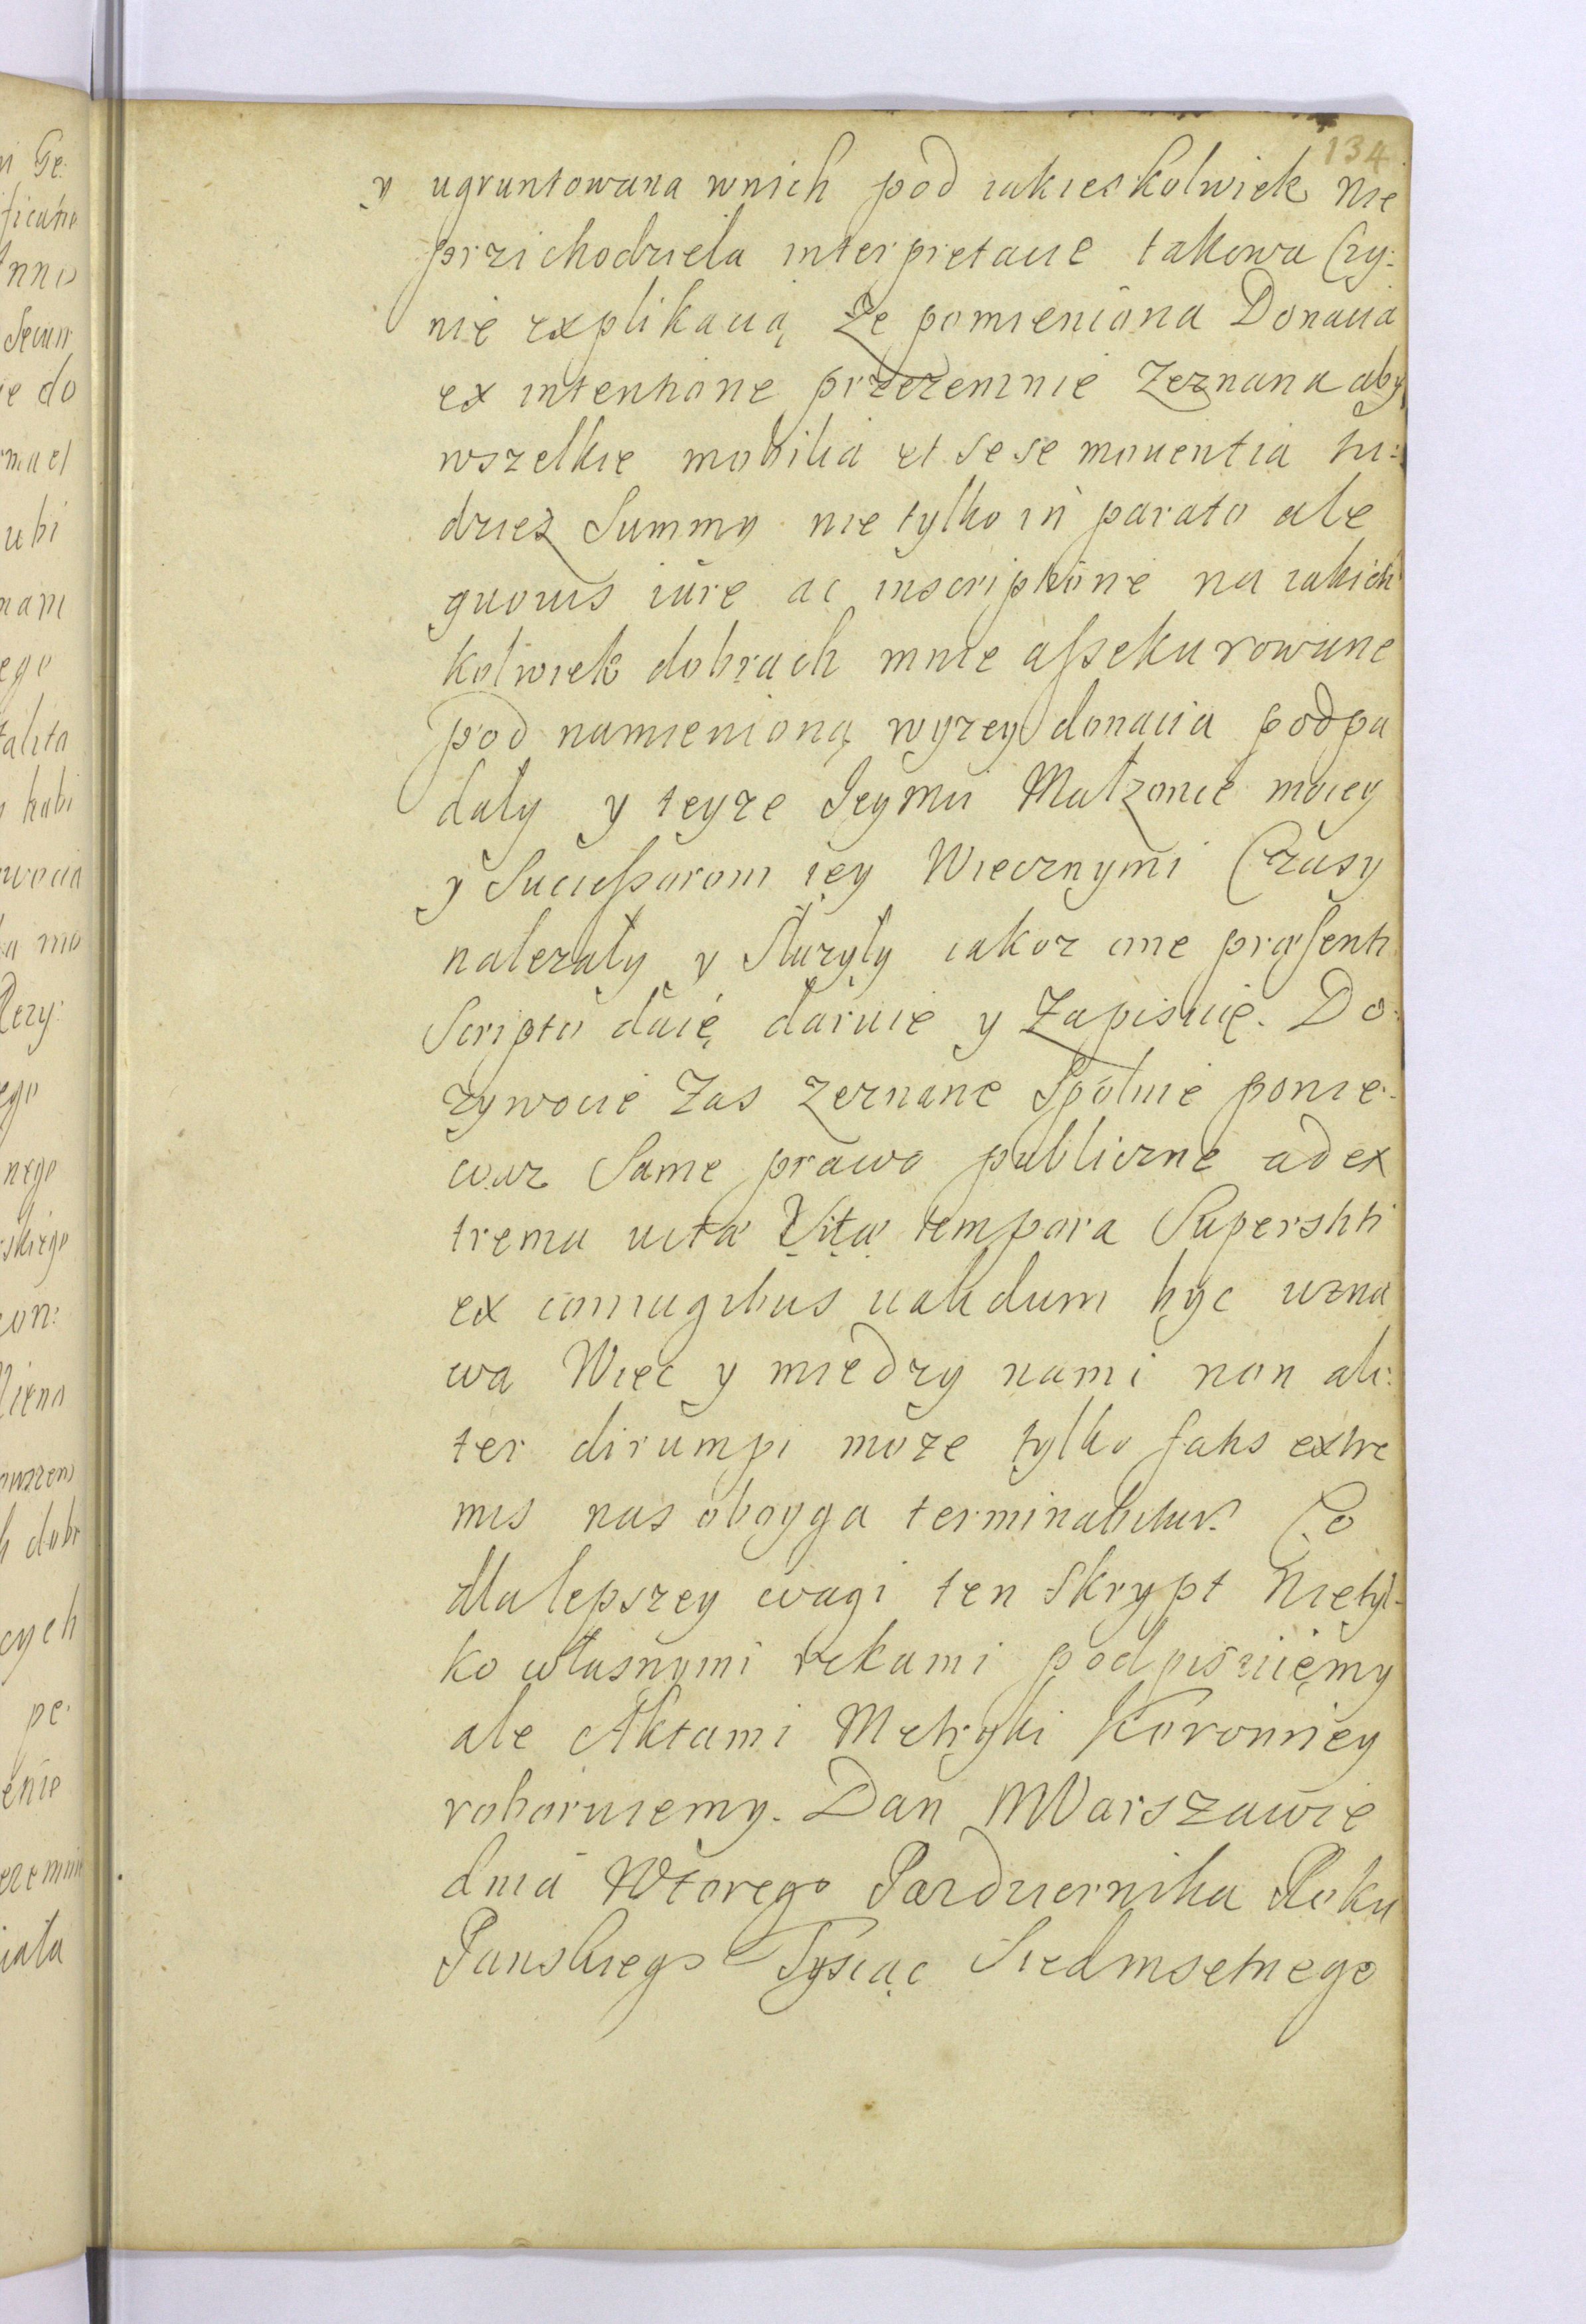 134
y ugruntowana wnich pod iakieskolwiek nie
przichodziela interpretacie takowa Czy:
nie explikacią Ze pomieniona Donacia
ex intentione przezemnie Zeznana aby
wszelkie mobilia et sese mouentia tu:
dziez Summy nie tylko in parato ale
quouis iure ac inscriptione na iakich
kolwiek dobrach mnie assekurowane
pod namienioną wyzey donacia podpa
dały y teyze Jeymci Małzonce moiey
y Sucessorom iey Wiecznymi Czasy
nalezały y Słuzyły iakoz one præsenti
Scripto daię daruie y Zapisuię. Do:
zywocie Zas zeznane Spólnie ponie-
waz Same prawo publiczne ad ex
trema Vitæ tempora Superstiti
ex coniugibus ualidum byc uzna
wa Więc y miedzy nami non ali:
ter dirumpi może tylko fatis extre
mis nas oboyga terminabitur. Co
dla lepszey wagi ten Skrypt Nietyl-
ko własnymi rekami podpisuięmy
ale Aktami Metryki Koronney
roboruiemy. Dan W Warszawie
dnia Wtorego Pazdziernika Roku
Panskiego Tysiąc Siedmsetnego